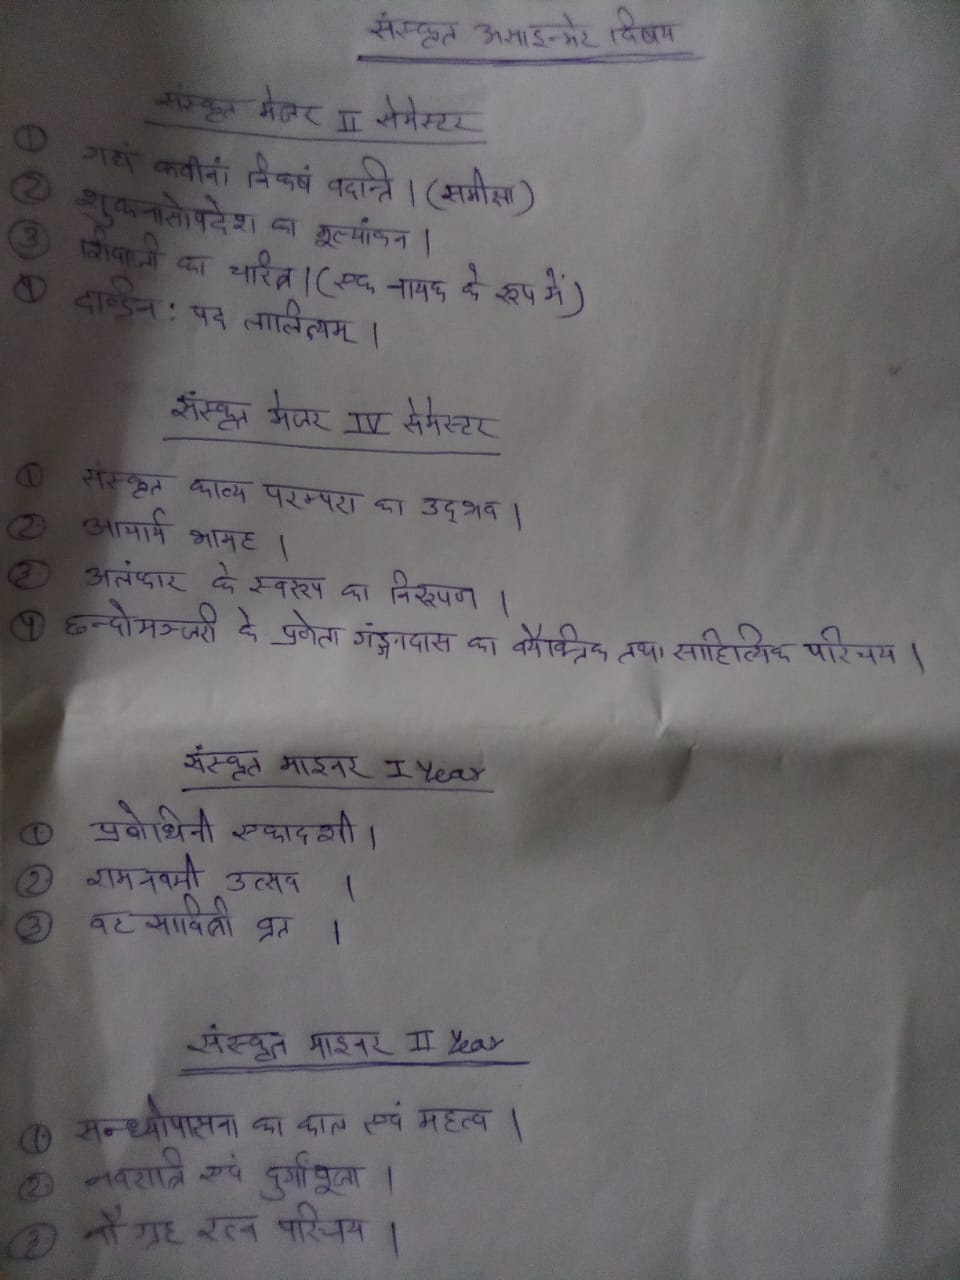 संस्कृत असाइन्मेंट विषय
संस्कृत मेजर II सेमेस्टर
① गद्यं कवीनां निकषं वदन्ति । (समीक्षा)
② शुकनासोपदेश का मूल्यांकन ।
③ शिवाजी का चरित्र । (एक नायक के रूप में)
④ दण्डिन: पद लालित्यम् ।
संस्कृत मेजर IV सेमेस्टर
① संस्कृत काव्य परम्परा का उद्भव ।
② आचार्य भामह ।
③ अलंकार के स्वरूप का निरूपण ।
④ छन्दोमञ्जरी के प्रणेता गंङ्गादास का वैयक्तिक तथा साहित्यिक परिचय ।
संस्कृत माइनर I Year
① प्रबोधिनी एकादशी ।
② रामनवमी उत्सव ।
③ वट सावित्री व्रत ।
संस्कृत माइनर II Year
① सन्ध्योपासना का काल एवं महत्व ।
② नवरात्रि एवं दुर्गापूजा ।
③ नौ ग्रह रत्न परिचय ।